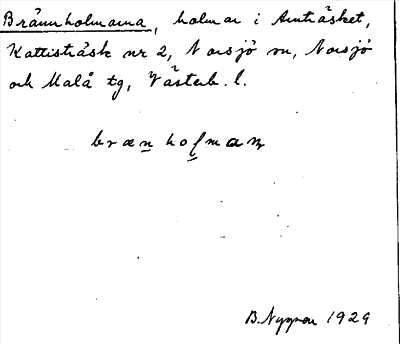 Brännholmarna, holmar i Arnträsket,
Kattisträsk nr 2, Norsjö sn, Norsjö
och Malå tg, Västerb. l.
brænholmaṇ
B. Nyman 1929